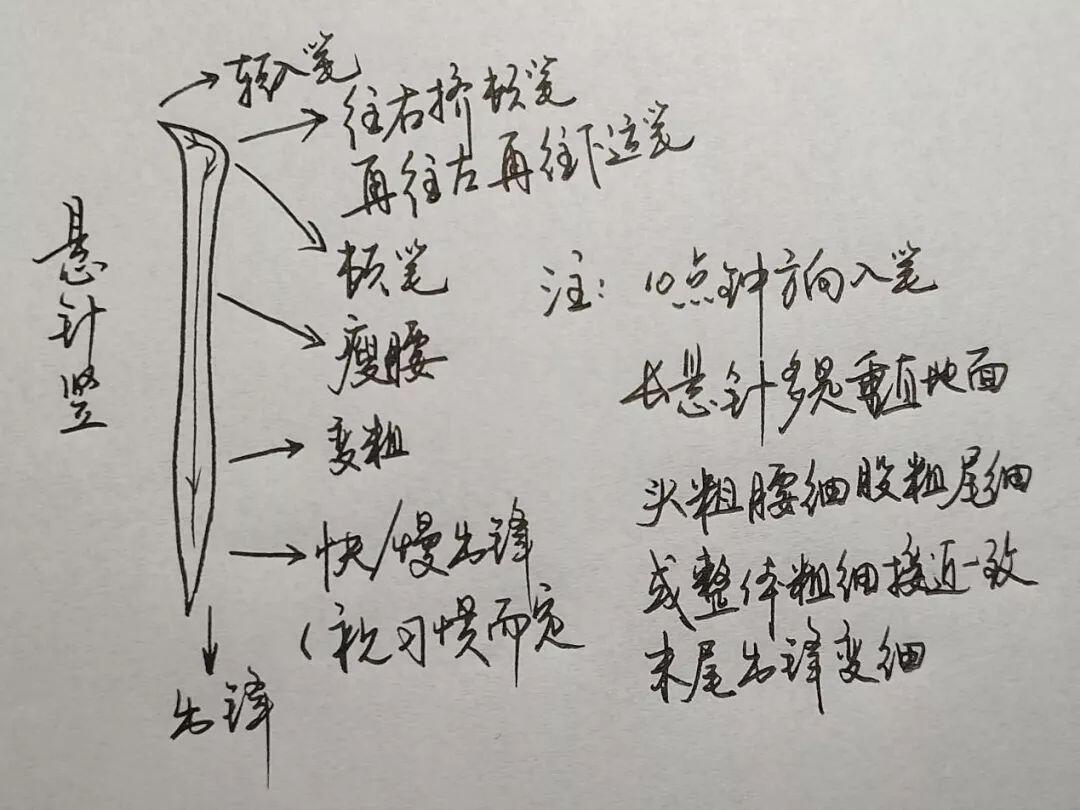 悬针竖
轻入笔
往右挤顿笔
再往右再往下运笔
顿笔
瘦腰
变粗
快/慢出锋
(视习惯而定
出锋
注：10点钟方向入笔
长悬针多是垂直地面
头粗腰细股粗尾细
或整体粗细接近一致
末尾出锋变细